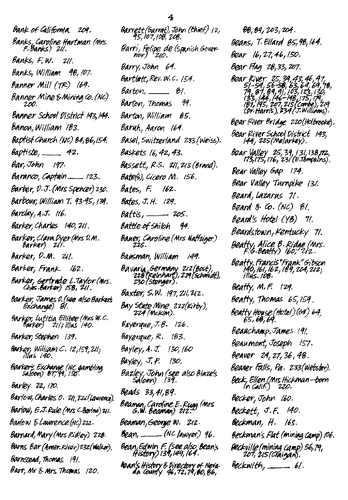 4
Bank of California 209.
Banks, Caroline Hartman (Mrs.
F. Banks) 211.
Banks, F.W. 211.
Banks, William 98, 107.
Banner Mill (TR) 169.
Banner Mine & Mining Co. (NC)
200.
Banner School District 143, 144.
Bannon, William 183.
Baptist Church (NC) 84, 86, 154.
Baptiste, 42.
Bar, John 197.
Baranco, Captain 123.
Barber, D.J. (Mrs Spencer) 230.
Barbour, William T. 93-95, 139.
Barclay, A.J. 116.
Barker, Charles 140, 211.
Barker, Clara Dyer (Mrs D.M.
Barker) 211.
Barker, D.M. 211.
Barker, Frank 162.
Barker, Gertrude E. Taylor (Mrs.
Chas. Barker) 158, 211.
Barker, James C. (see also Barkers
Exchange) 81.
Barker, Lutitia Ellibee (Mrs W.C.
Barker) 211; illus 140.
Barker, Stephen 139.
Barker, William C. 12, 139, 211;
illus. 140.
Barkers Exchange (NC gambling
saloon) 87, 99, 150.
Barley 22, 170.
Barlow, Charles O. 211, 221 (Lawrence)
Barlow, E.J. Rule (Mrs C. Barlow) 211.
Barlow & Lawrence (NC) 222.
Barnard, Mary (Mrs Ridley) 228.
Barns Bar (Amer. River) 232 (Walker).
Barnstead, Thomas 191.
Barr, Mr & Mrs Thomas 120.
Barrete (Garrat), John (thief) 12,
95, 107, 108, 208.
Barri, Felipe de (Spanish Gover-
nor) 210.
Barry, John 69.
Bartlett, Rev. W.C. 154.
Barton, 81.
Barton, Thomas 99.
Barton, William 85.
Barub, Aaron 164.
Basel, Switzerland 233 (Weiss).
Baskets 16, 42, 43.
Bassett, R.S. 211, 212 (Brand).
Batelli, Cicero M. 156.
Bates, F. 162.
Bates, J.H. 129.
Battis, 205.
Battle of Shiloh 94.
Bauer, Caroline (Mrs Naffziger)
225.
Bausman, William 149.
Bavaria, Germany 212 (Bost),
228 (Reinhart), 229 (Schmidt),
230 (Stenger).
Baxter, S.W. 197, 211, 212.
Bay State Mine 222 (Kirby),
224 (McKim).
Bayerque, J.B. 126.
Bayerque, R. 183.
Bayley, A.J. 130, 160
Bayley, J.P. 130.
Bazley, John (see also Blaze's
Saloon) 139.
Beads 33, 41, 89.
Beaman, Caroline E. Rugg (Mrs
G.W. Beaman) 212.
Beaman, George W. 212.
Bean, (NC lawyer) 96.
Bean, Edwin F. (see also Bean's
History) 139, 149, 164.
Bean's History & Directory of Neva-
da County 46, 72, 79, 80, 86,
88, 89, 203, 204.
Beans, T. Ellard 85, 98, 164.
Bear 16, 27, 46, 150.
Bear Flag 28, 33, 207.
Bear River Bridge 220 (Holbrooke).
Bear River School District 143,
144, 225 (McLarker).
Bear Valley Gap 174.
Bear Valley Turnpike 131.
Beard, Lazarus 71.
Beard & Co. (NC) 81.
Beard's Hotel (YB) 71.
Beardstown, Kentucky 71.
Beatty, M.F. 129.
Beatty, Thomas 65, 159.
Beatty House (Hotel) (GV) 64,
65, 68, 69.
Beauchamp, James 191.
Beaumont, Joseph 157.
Beaver 24, 27, 36, 48.
Beaver Falls, Pa. 233 (Webster).
Beck, Ellen (Mrs Hickman—born
in Calif.) 220.
Becker, John 160.
Beckett, J.F. 140.
Beckman, H. 163.
Beckman's Flat (mining camp) 106.
Beckville (mining camp) 56, 79,
207, 215 (Craigan).
Beckwith, 61.